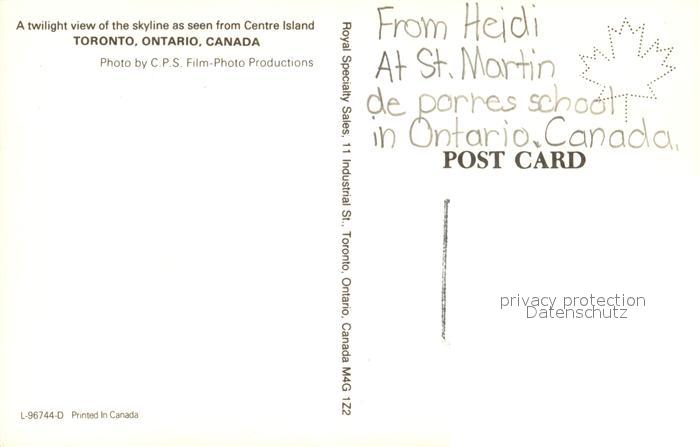 A twilight view of the skyline as seen from Centre Island
TORONTO, ONTARIO, CANADA
Photo by C.P.S. Film-Photo Productions
L-96744-D Printed In Canada
Royal Specialty Sales, 11 Industrial St., Toronto, Ontario, Canada M4G 1Z2
From Heidi
At St. Martin
de porres school
in Ontario, Canada.
POST CARD
privacy protection
Datenschutz